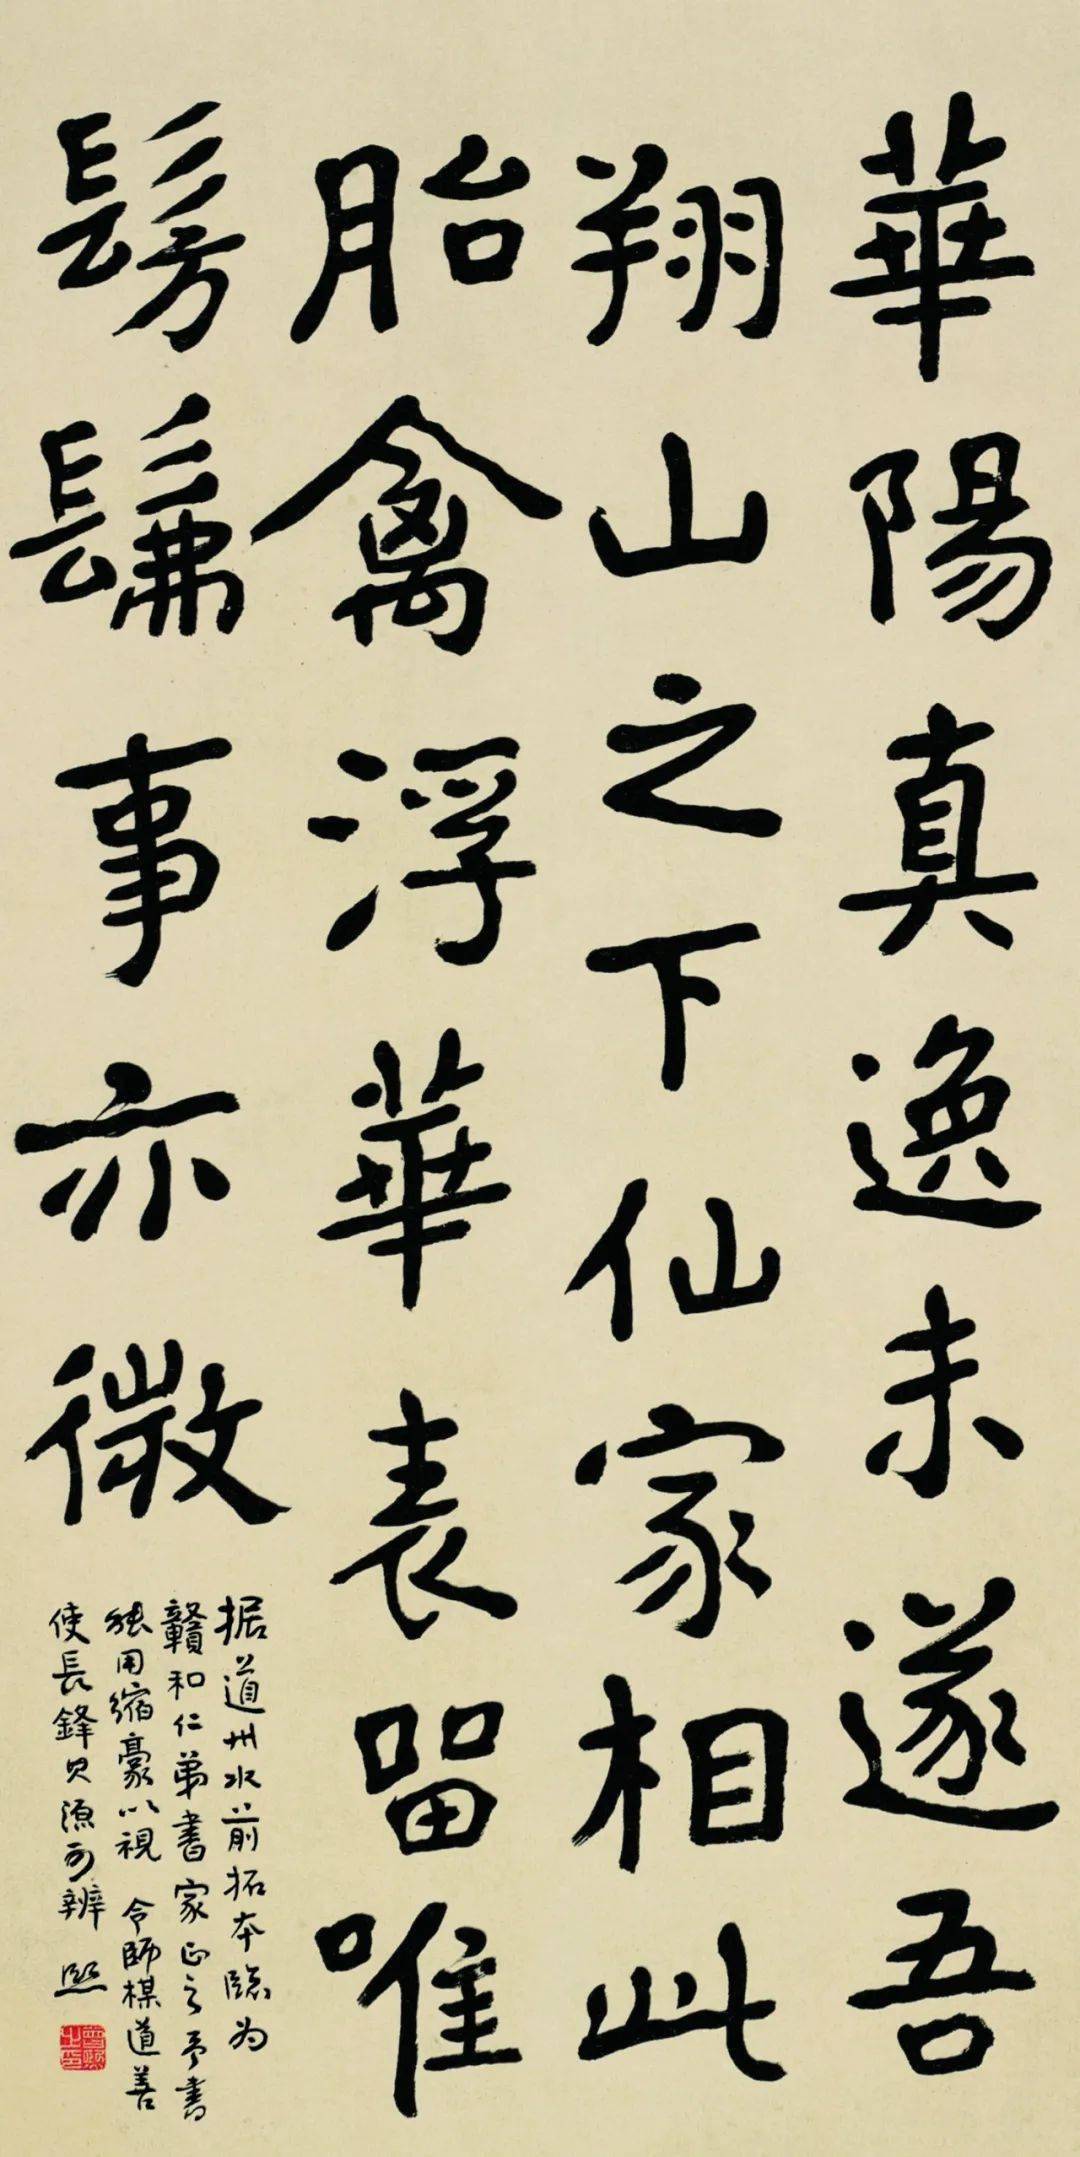 華陽真逸未遂吾
翔山之下仙家相此
胎禽浮華表留唯
髣髴事亦微
据道州水前拓本臨为
贛和仁弟書家正之予書
用縮豪以視 令師楳道善
使長鋒源可辨 熙